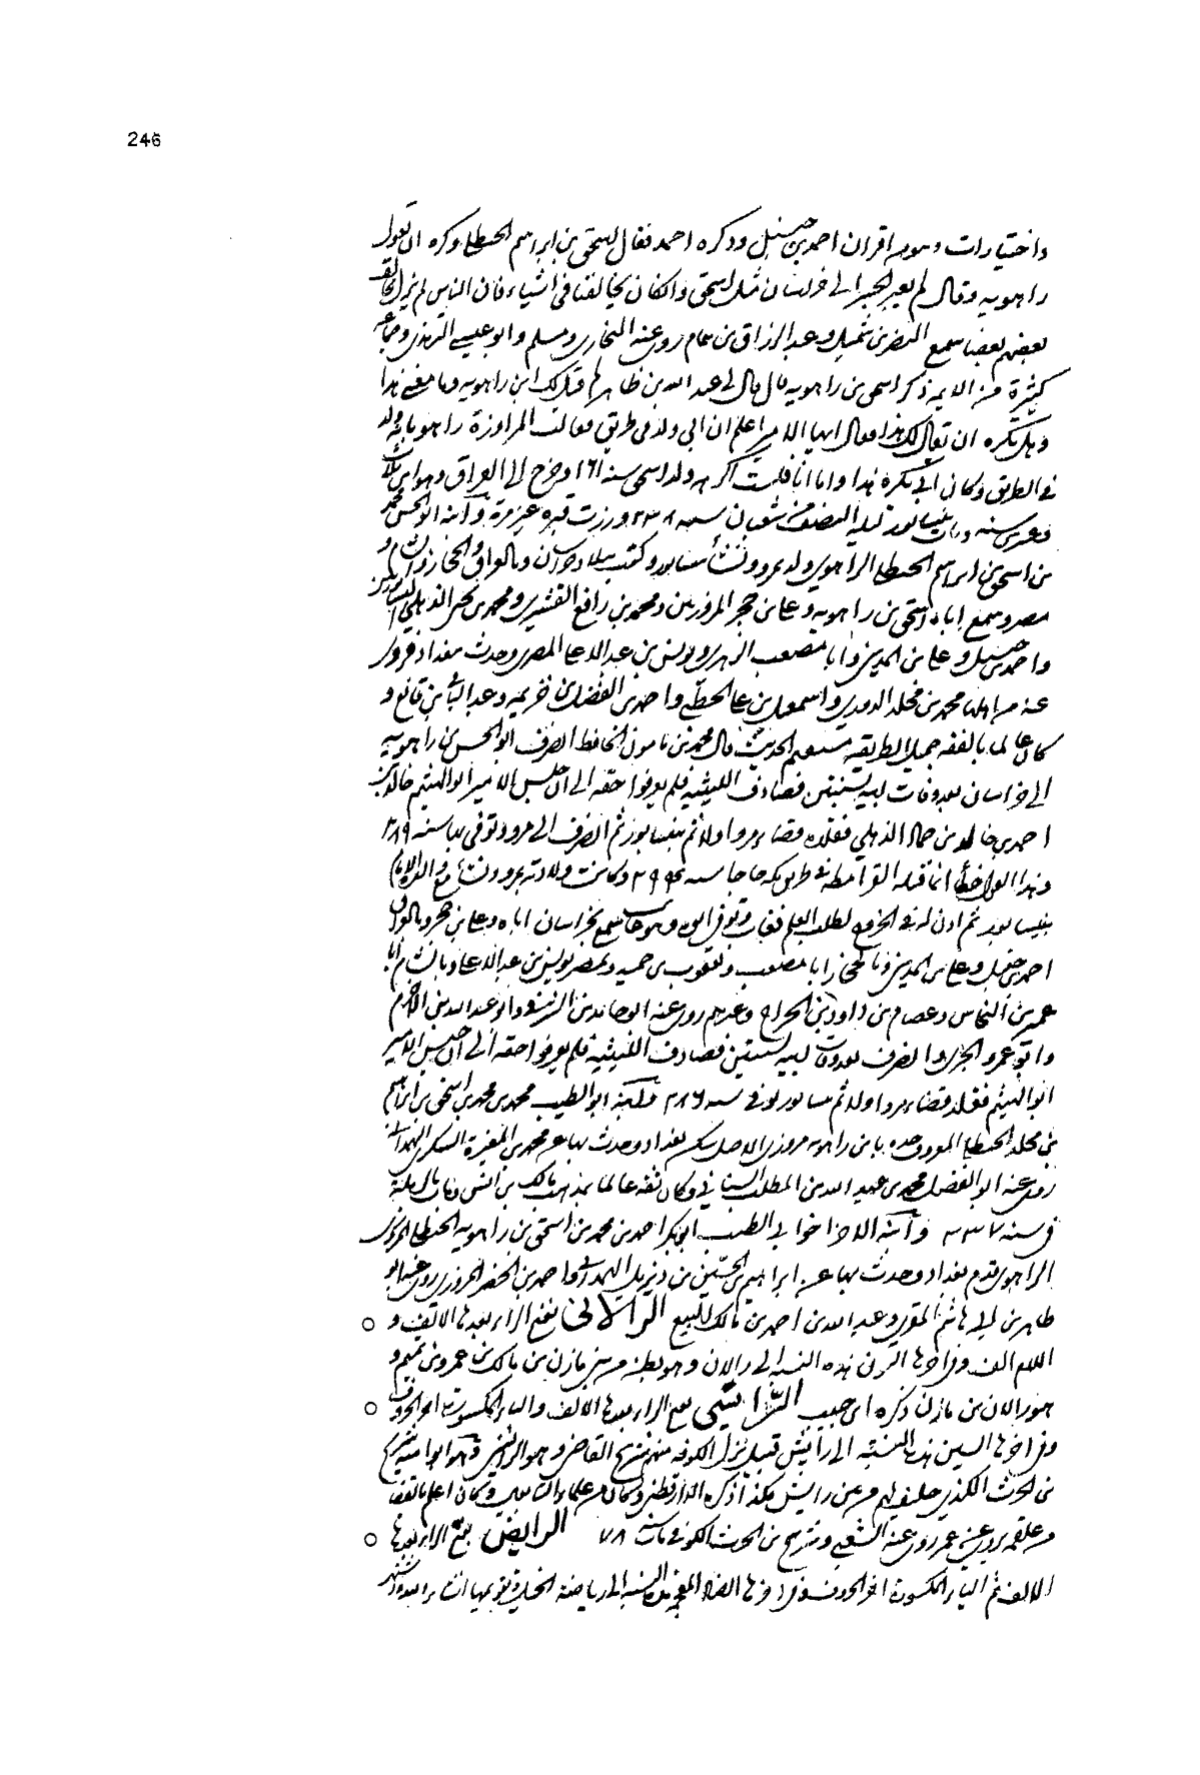 246
واختيارات وهو من اقران احمد بن حنبل وذكره احمد فقال اسحق بن ابراهيم الحنظلي وكره ان يقول
راهويه وقال لم يعبر الجسر الى خراسان مثل اسحق وان كان يخالفنا في اشياء فان الناس لم يزل يخالف
بعضهم بعضا سمع النضر بن شميل وعبد الرزاق بن همام روى عنه البخاري ومسلم وابو عيسى الترمذي وجماعة
كثيرة من الايمة ذكر اسحق بن راهويه قال قال لي عبد الله بن طاهر لم قيل لك ابن راهويه وما معنى هذا
وهل تكره ان يقال لك هذا فقال ايها الامير اعلم ان ابي ولد في طريق فقالت المراوزة راهويه بانه ولد
في الطريق وكان ابي يكره هذا واما انا فلست اكرهه ولد اسحق سنة ١٦١ وخرج الى العراق وهو ابن ثلاث
وعشرين سنة ومات بنيسابور ليلة النصف من شعبان سنة ٢٣٨ وزرت قبره غير مرة وابنه ابو الحسن محمد
بن اسحق بن ابراهيم الحنظلي الراهويي ولد بمرو ونشأ بنيسابور وكتب ببلاد خراسان وبالعراق والحجاز والشام و
مصر وسمع اباه اسحق بن راهويه وعلي بن حجر المروزيين ومحمد بن رافع القشيري ومحمد بن يحيى الذهلي النيسابوريين
واحمد بن حنبل وعلي بن المديني وابا مصعب الزهري ويونس بن عبد الاعلى المصري وحدث ببغداد فروى
عنه من اهلها محمد بن مخلد الدوري واسمعيل بن علي الخطبي واحمد بن الفضل بن خزيمة وعبد الباقي بن قانع و
كان عالما بالفقه جميل الطريقة مستقيم الحديث قال محمد بن مامون الحافظ انصرف ابو الحسن بن راهويه
الى خراسان بعد وفات ابيه بسنتين فصادف الليثية فلم يعرفوا حقه الى ان جلس الامير ابو الهيثم خالد بن
احمد بن خالد بن حماد الذهلي فقلده قضاء مرو اولا ثم بنيسابور ثم انصرف الى مرو وتوفي بها سنة ٢٨٩
وهذا القول خطأ انما قتله القرامطة في طريق مكة حاجا سنة ٢٩٤ وكانت ولادته بمرو ونشأ مع
بنيسابور ثم اذن له في الخروج لطلب العلم سمع بخراسان اباه وعلي بن حجر وبالعراق
احمد بن حنبل وعلي بن المديني وبالحجاز ابا مصعب ويعقوب بن حميد وبمصر يونس بن عبد الاعلى وبالشام ابا
عمير بن النحاس وعصام بن رواد بن الجراح وغيرهم روى عنه ابو حامد بن الشرقي وابو عبد الله بن الاخرم
وابو عمرو الحيري وانصرف بعد وفات ابيه بسنتين فصادف الليثية فلم يعرفوا حقه الى ان جلس الامير
ابو الهيثم فقلده قضاء مرو اولا ثم نيسابور توفي سنة ٢٨٦ ابنه ابو الطيب محمد بن محمد بن اسحق بن ابراهيم
بن مخلد الحنظلي المعروف جده بابن راهويه مروزي الاصل سكن بغداد وحدث بها عن محمد بن المغيرة السكري الهمداني
روى عنه ابو الفضل محمد بن عبيد الله بن المطلب الشيباني وكان ثقة عالما بمذهب مالك بن انس ومات بالرملة
في سنة ٣٣٧ وابنه الاخر اخو ابي الطيب ابو بكر احمد بن محمد بن اسحق بن راهويه الحنظلي المروزي
الراهويي قدم بغداد وحدث بها عن ابراهيم بن الحسين بن ديزيل الهمداني واحمد بن الخضر المروزي روى عنه ابو
طاهر بن ابي هاشم المقري وعبد الله بن احمد بن مالك البيع الرالاني بفتح الراء بعدها الالف و
اللام الف وفي اخرها النون هذه النسبة الى رالان وهو بطن من بني مازن بن مالك بن عمرو بن تميم و
هو رالان بن مازن ذكره ابن حبيب الرايشي بفتح الراء بعدها الالف والياء المكسورة اخر الحروف
وفي اخرها الشين هذه النسبة الى رايش قبيل نزل الكوفة منهم شريح القاضي وهو الرايشي وهو ابو امية شريح
بن الحرث الكندي حليف لهم من بني رايش هكذا ذكره الدارقطني وكان من علماء التابعين وكان اعلم بالقضاء
من علقمة يروي عن عمر روى عنه الشعبي وشريح بن الحرث الكوفي مات سنة ٧٨ الرايض بفتح الراء بعدها
الالف ثم الياء المكسورة اخر الحروف وفي اخرها الضاد المعجمة هذه النسبة الى رياضة الخيل وتقويمها